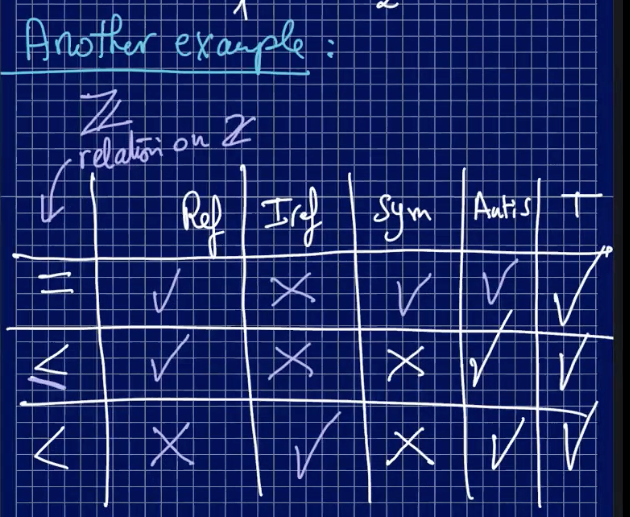 1 2
Another example :
ℤ
relation on ℤ
Ref Iref Sym Antis T
= ✓ ✗ ✓ ✓ ✓
≤ ✓ ✗ ✗ ✓ ✓
< ✗ ✓ ✗ ✓ ✓